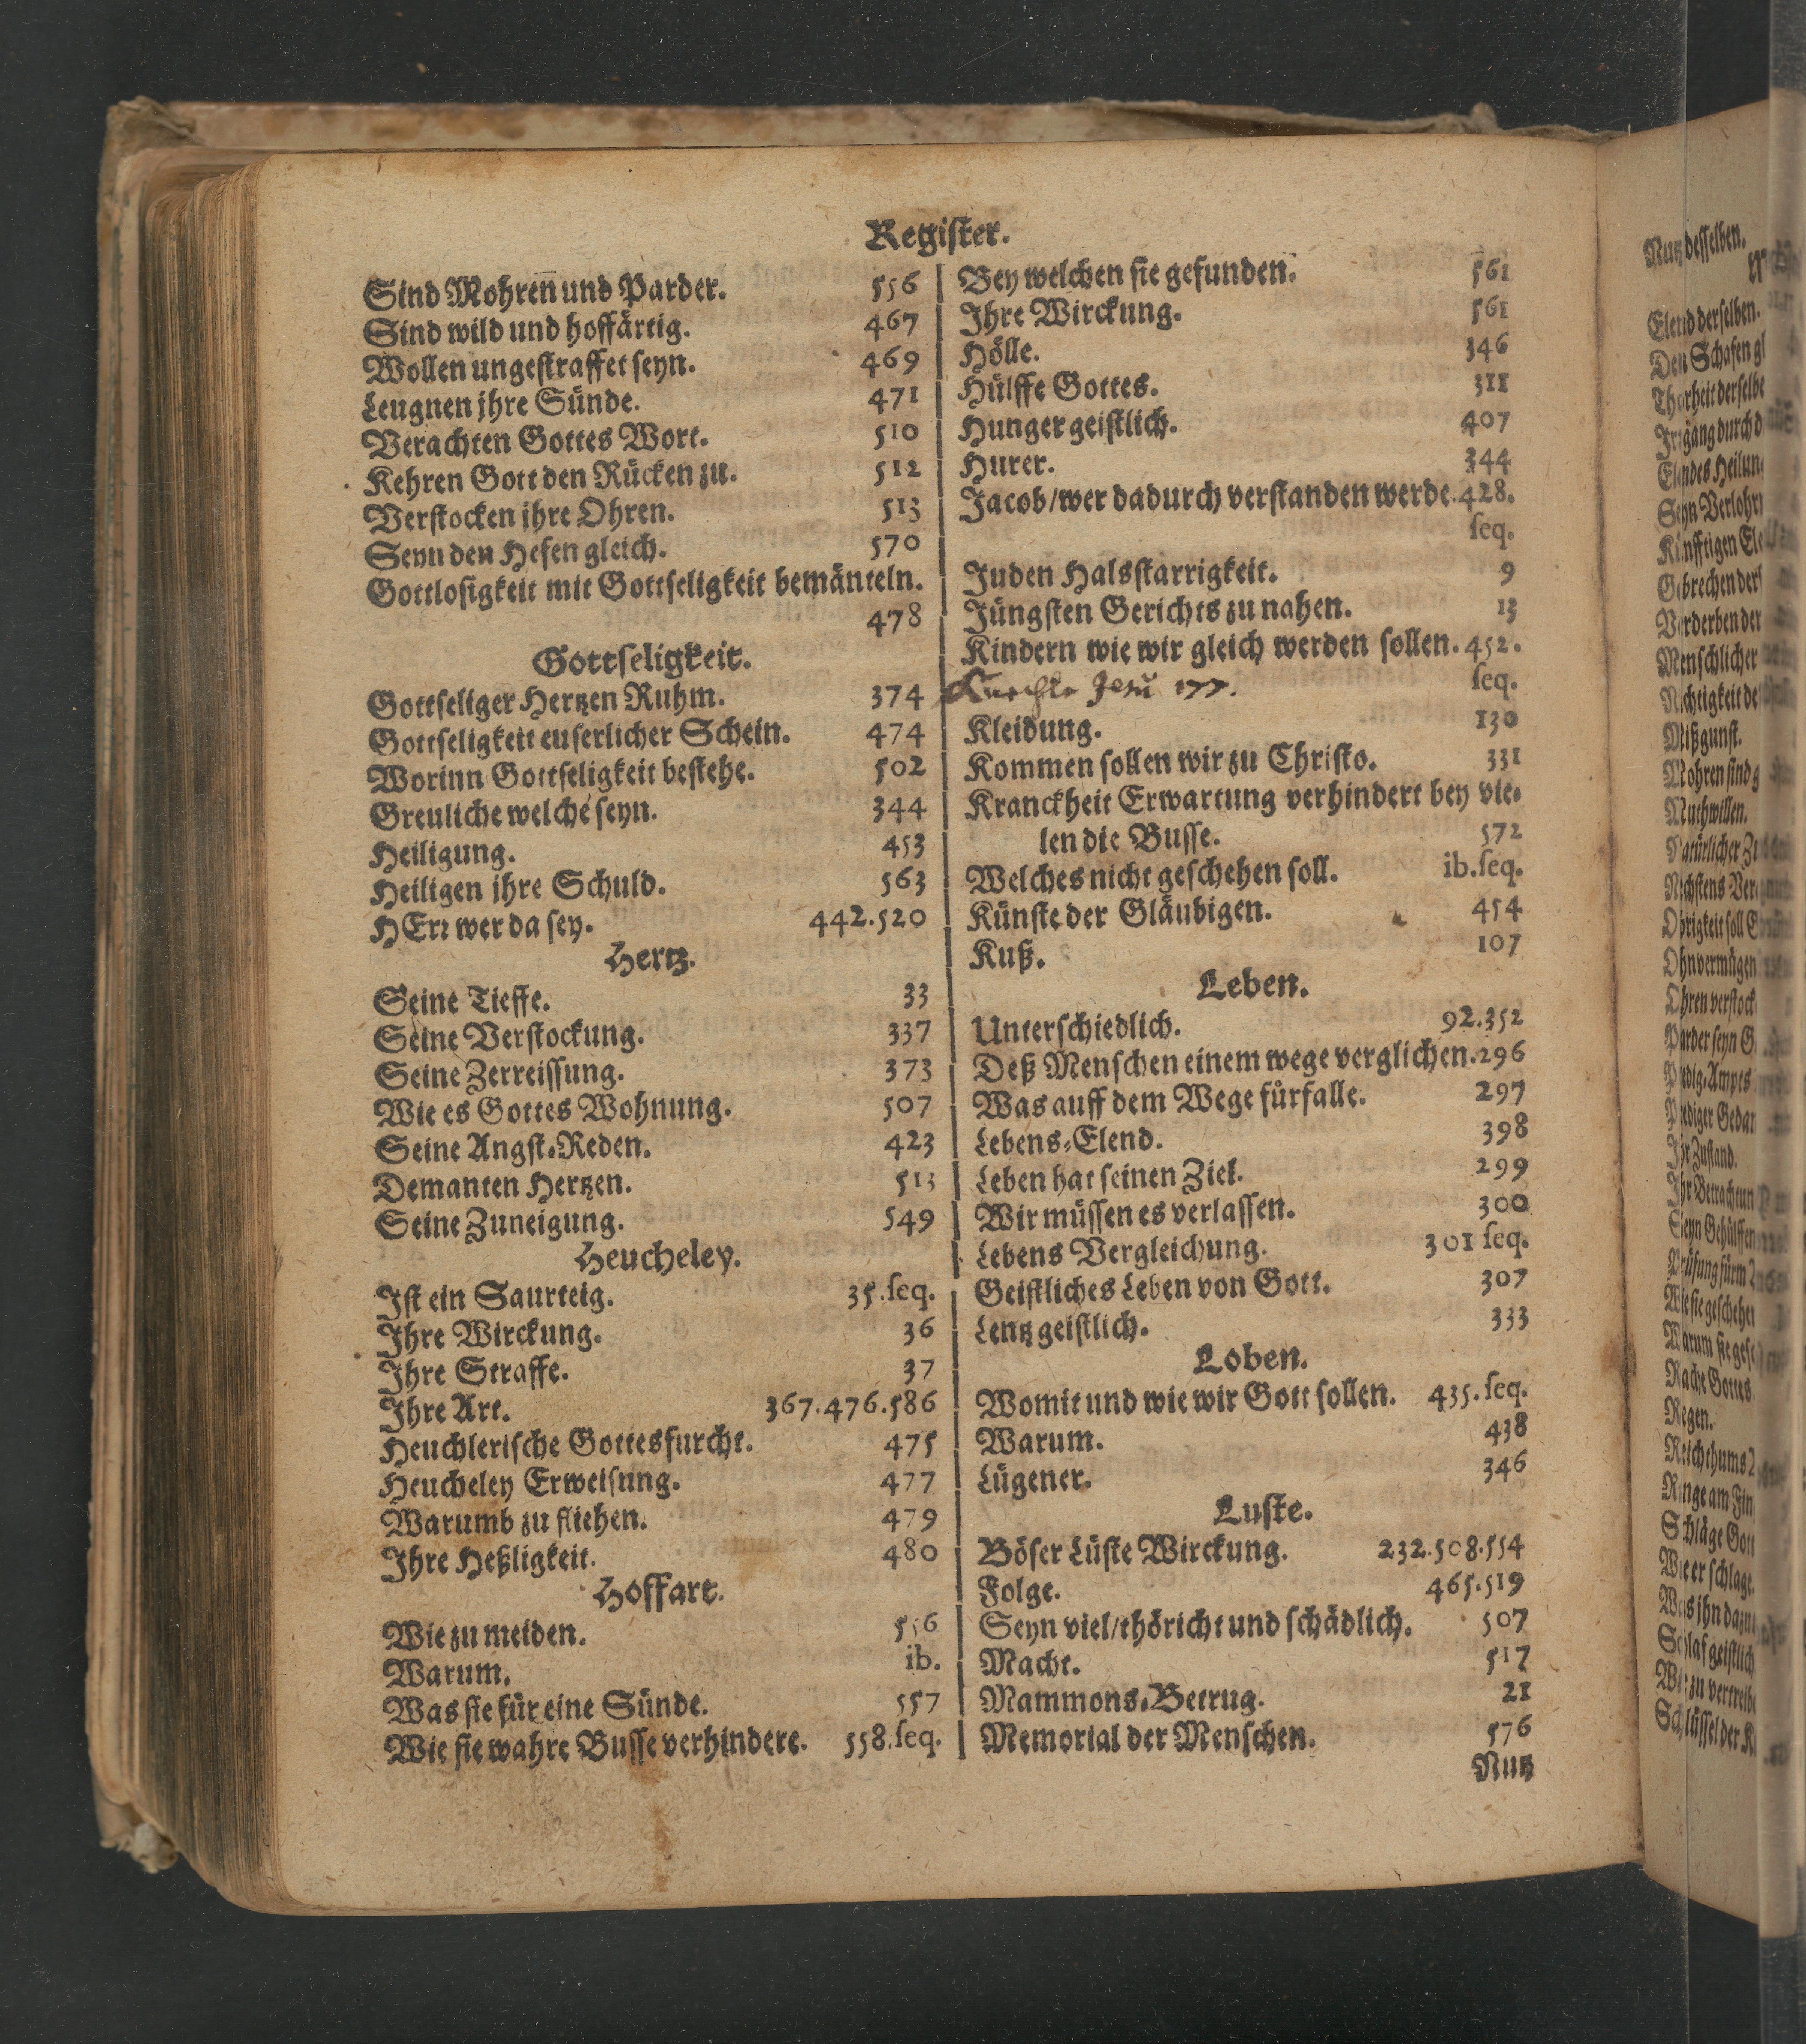 Register.
Sind Mohren̄ und Parder. 556
Sind wild und hoffärtig. 467
Wollen ungestraffet seyn. 469
Leugnen jhre Sünde. 471
Verachten Gottes Wort. 510
Kehren Gott den Rücken zu. 512
Verstocken jhre Ohren. 513
Seyn den Hefen gleich. 570
Gottlosigkeit mit Gottseligkeit bemänteln.
478
Gottseligkeit.
Gottseliger Hertzen Ruhm. 374
Gottseligkeit euserlicher Schein. 474
Worinn Gottseligkeit bestehe. 502
Greuliche welche seyn. 344
Heiligung. 453
Heiligen jhre Schuld. 563
HErr wer da sey. 442.520
Hertz.
Seine Tieffe. 33
Seine Verstockung. 337
Seine Zerreissung. 373
Wie es Gottes Wohnung. 507
Seine Angst-Reden. 423
Demanten Hertzen. 513
Seine Zuneigung. 549
Heucheley.
Ist ein Saurteig. 35.seq.
Ihre Wirckung. 36
Ihre Straffe. 37
Ihre Art. 367.476.586
Heuchlerische Gottesfurcht. 475
Heucheley Erweisung. 477
Warumb zu fliehen. 479
Ihre Heßligkeit. 480
Hoffart.
Wie zu meiden. 556
Warum. ib.
Was sie für eine Sünde. 557
Wie sie wahre Busse verhindere. 558.seq.
Bey welchen sie gefunden. 561
Ihre Wirckung. 561
Hölle. 346
Hülffe Gottes. 311
Hunger geistlich. 407
Hurer. 344
Jacob/wer dadurch verstanden werde.428.
seq.
Juden Halsstarrigkeit. 9
Jüngsten Gerichts zu nahen. 13
Kindern wie wir gleich werden sollen.452.
seq.
Jesu 177.
Kleidung. 130
Kommen sollen wir zu Christo. 331
Kranckheit Erwartung verhindert bey vie-
len die Busse. 572
Welches nicht geschehen soll. ib.seq.
Künste der Gläubigen. 454
Kuß. 107
Leben.
Unterschiedlich. 92.352
Deß Menschen einem wege verglichen.296
Was auff dem Wege fürfalle. 297
Lebens-Elend. 398
Leben hat seinen Ziel. 299
Wir müssen es verlassen. 300
Lebens Vergleichung. 301 seq.
Geistliches Leben von Gott. 307
Lentz geistlich. 333
Loben.
Womit und wie wir Gott sollen. 435.seq.
Warum. 438
Lügener. 346
Luste.
Böser Lüste Wirckung. 232.508.554
Folge. 465.519
Seyn viel/thöricht und schädlich. 507
Macht. 517
Mammons-Betrug. 21
Memorial der Menschen. 576
Nutz
Nutz desselben.
Elend derselben.
Den Schafen
Mißgunst.
Muthwillen.
Rache Gottes
Regen.